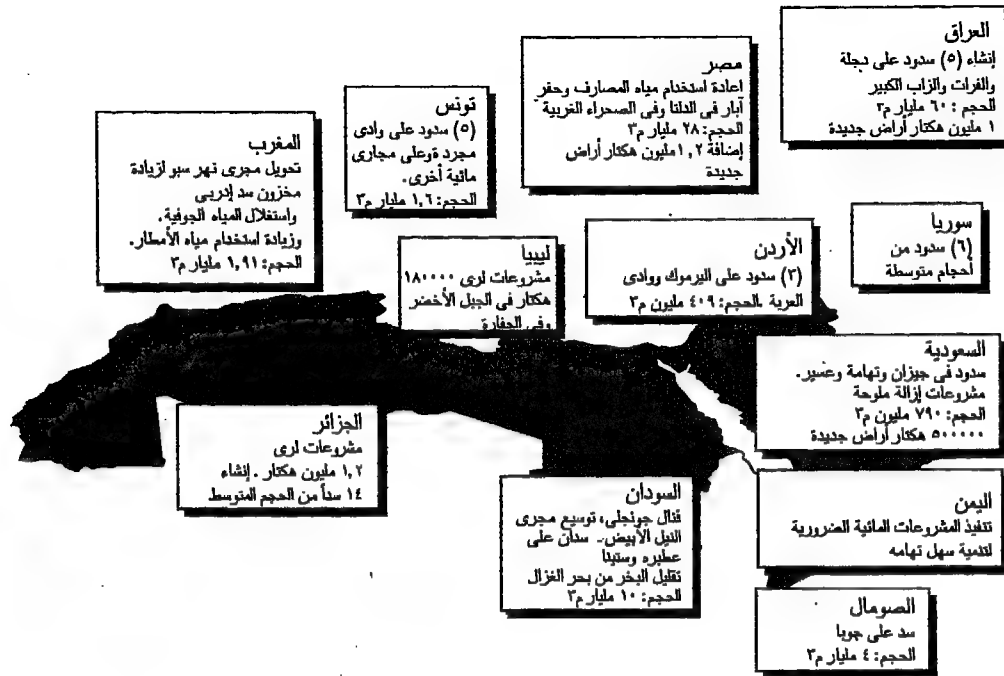 العراق
إنشاء (٥) سدود على دجلة
والفرات والزاب الكبير
الحجم : ٦٠ مليار م٣
١ مليون هكتار أراض جديدة
مصر
اعادة استخدام مياه المصارف وحفر
آبار فى الدلتا وفى الصحراء الغربية
الحجم: ٢٨ مليار م٣
إضافة ١,٢ مليون هكتار أراض
جديدة
تونس
(٥) سدود على وادى
مجرد ةوعلى مجارى
مائية أخرى.
الحجم: ١,٦ مليار م٣
المغرب
تحويل مجرى نهر سبو لزيادة
مخزون سد إدريى
واستغلال المياه الجوفية.
وزيادة استخدام مياه الأمطار.
الحجم: ١,٩١ مليار م٣
سوريا
(٦) سدود من
أحجام متوسطة
الأردن
(٣) سدود على اليرموك ووادى
العربة .الحجم: ٤٠٩ مليون م٣
ليبيا
مشروعات لرى ١٨٠٠٠٠
هكتار فى الجبل الأخضر
وفى الجفارة
السعودية
سدود فى جيزان وتهامة وعسير.
مشروعات إزالة ملوحة
الحجم: ٧٩٠ مليون م٣
٥٠٠٠٠٠ هكتار أراض جديدة
الجزائر
مشروعات لرى
١,٢ مليون هكتار . إنشاء
١٤ سداً من الحجم المتوسط
السودان
قنال جونجلى، توسيع مجرى
النيل الأبيض.- سدان على
عطبره وستيتا
تقليل البخر من بحر الغزال
الحجم: ١٠ مليار م٣
اليمن
تنفيذ المشروعات المائية الضرورية
لتنمية سهل تهامه
الصومال
سد على جوبا
الحجم: ٤ مليار م٣